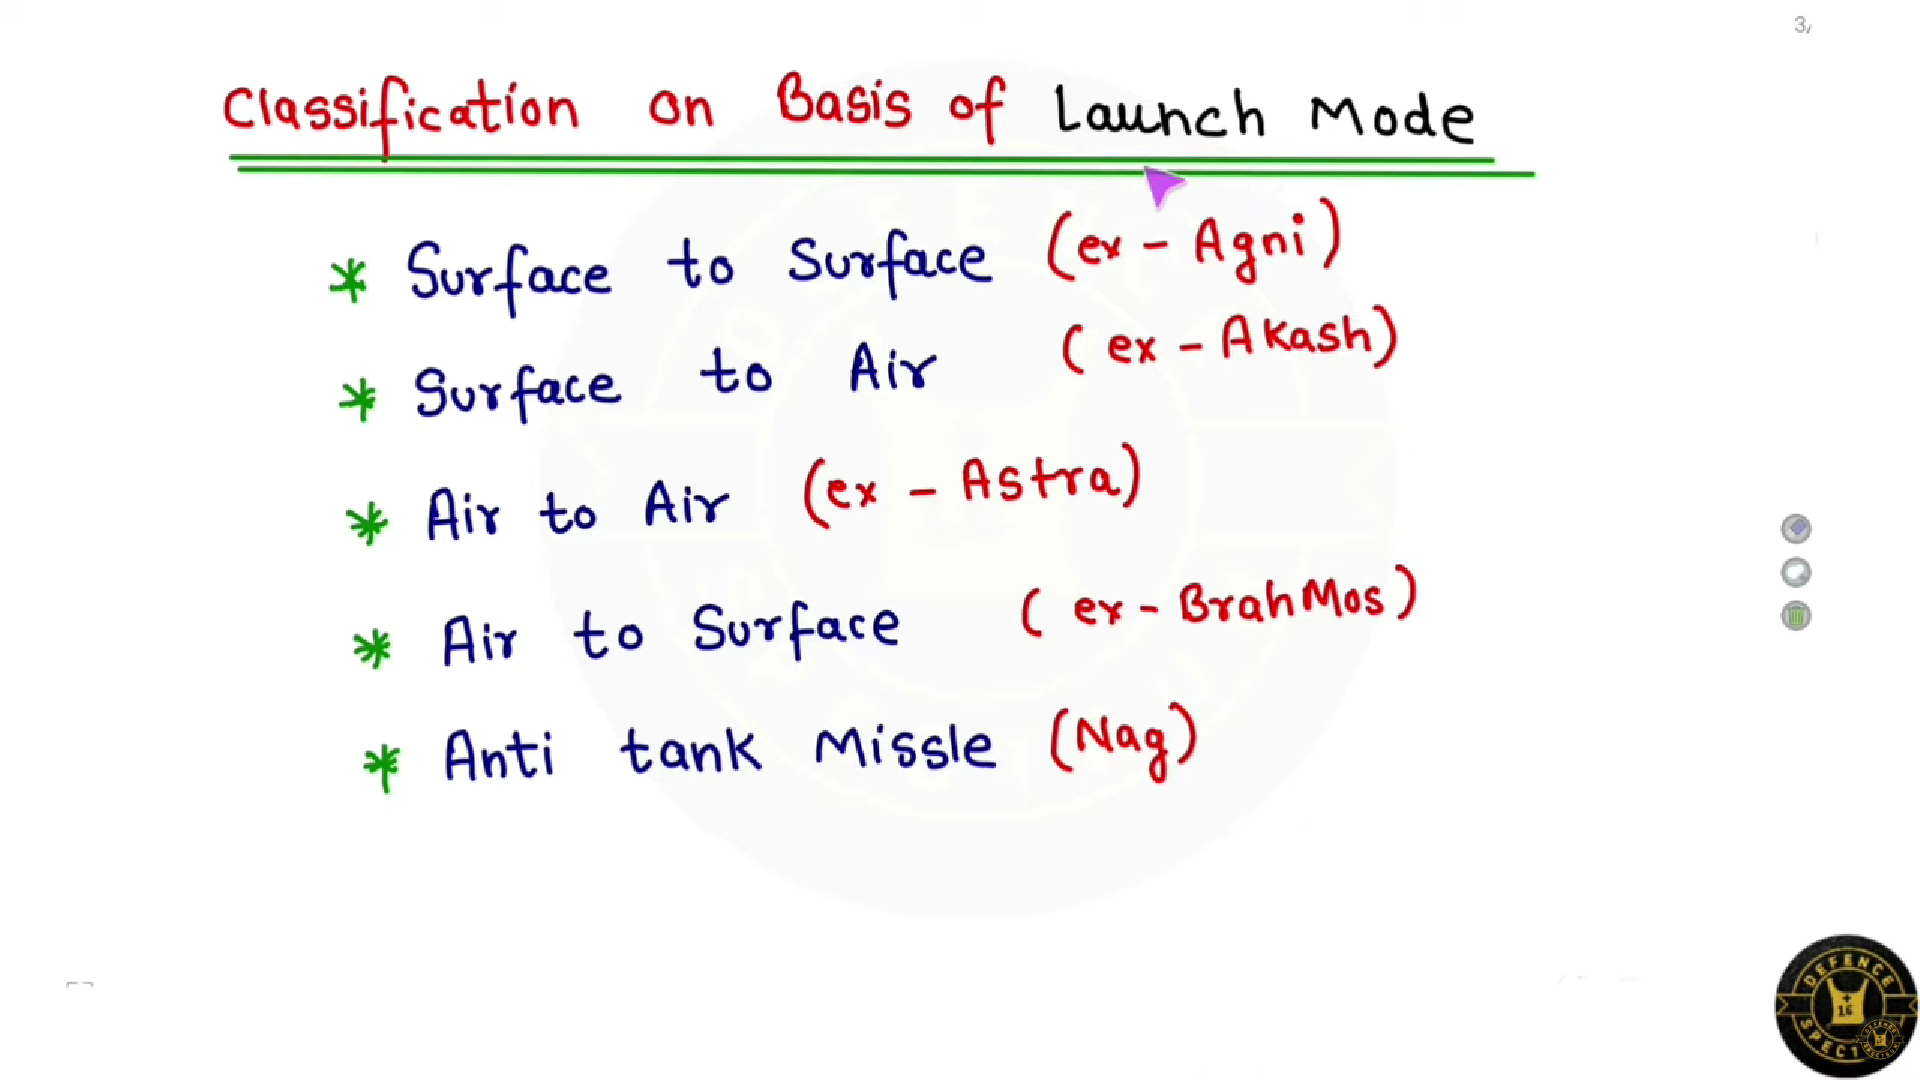 3/
Classification on Basis of Launch Mode
* Surface to Surface (ex - Agni)
* Surface to Air (ex - Akash)
* Air to Air (ex - Astra)
* Air to Surface (ex - BrahMos)
* Anti tank Missle (Nag)
DEFENCE
16